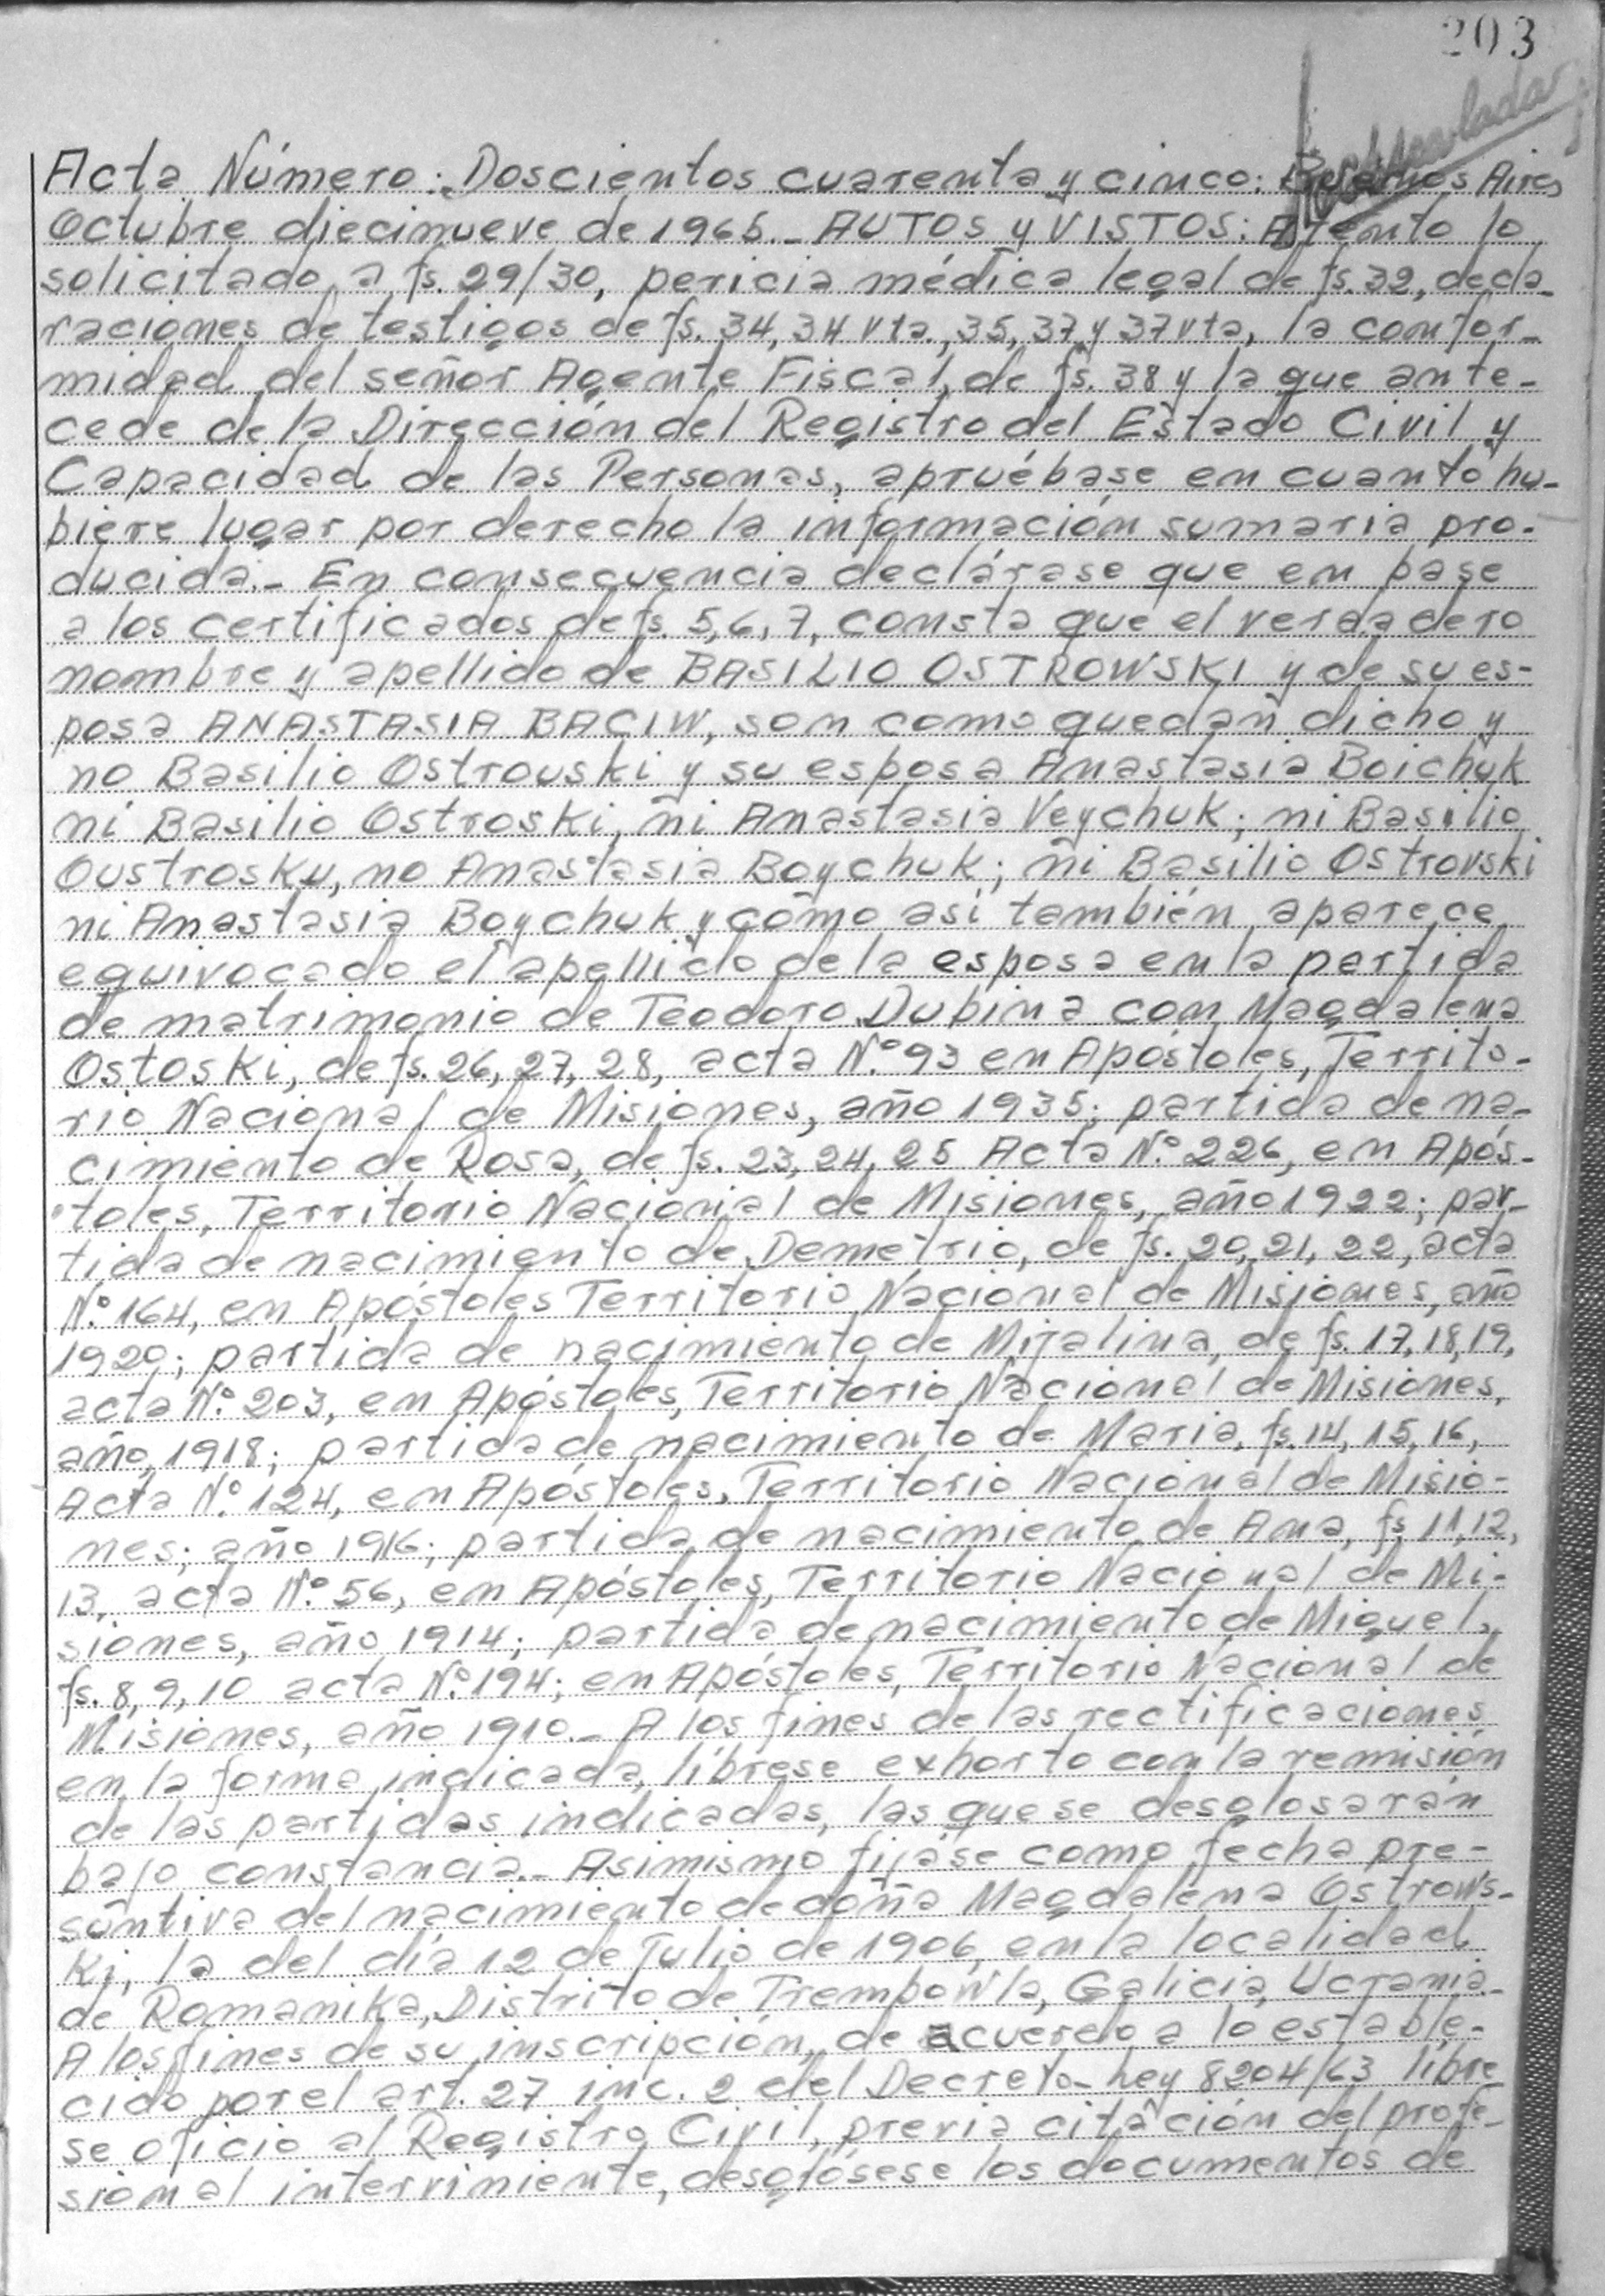 203
Acta Número: Doscientos cuarenta y cinco: Buenos Aires
Octubre diecinueve de 1965._ AUTOS y VISTOS: Atento lo
solicitado a fs. 29/30, pericia médica legal de fs. 32, decla_
raciones de testigos de fs. 34, 34 vta., 35, 37 y 37 vta, la confor_
midad del señor Agente Fiscal, de fs. 38 y la que ante_
cede de la Dirección del Registro del Estado Civil y
Capacidad de las Personas, apruébase en cuanto hu_
biere lugar por derecho la información sumaria pro-
ducida._ En consecuencia declárase que en base
a los certificados de fs. 5, 6, 7, consta que el verdadero
nombre y apellido de BASILIO OSTROWSKI y de su es-
posa ANASTASIA BACIW, son como quedan dicho y
no Basilio Ostrouski y su esposa Anastasia Boichuk
ni Basilio Ostroski, ni Anastasia Veychuk; ni Basilio
Oustrosky, no Anastasia Boychuk; ni Basilio Ostrovski
ni Anastasia Boychuk y cómo así también aparece
equivocado el apellido de la esposa en la partida
de matrimonio de Teodoro Dubina con Magdalena
Ostoski, de fs. 26, 27, 28, acta Nº 93 en Apóstoles, Territo-
rio Nacional de Misiones, año 1935; partida de na-
cimiento de Rosa, de fs. 23, 24, 25 Acta Nº 226, en Após-
toles, Territorio Nacional de Misiones, año 1922; par-
tida de nacimiento de Demetrio, de fs. 20, 21, 22, acta
Nº 164, en Apóstoles Territorio Nacional de Misiones, año
1920; partida de nacimiento de Mijalina, de fs. 17, 18, 19,
acta Nº 203, en Apóstoles, Territorio Nacional de Misiones,
año, 1918; partida de nacimiento de Maria, fs. 14, 15, 16,
Acta Nº 124, en Apóstoles, Territorio Nacional de Misio-
nes; año 1916; partida de nacimiento de Ana, fs, 11, 12,
13, acta Nº 56, en Apóstoles, Territorio Nacional de Mi-
siones, año 1914; partida de nacimiento de Miguel,
fs. 8, 9, 10 acta Nº 194; en Apóstoles, Territorio Nacional de
Misiones, año 1910._ A los fines de las rectificaciones
en la forma indicada, líbrese exhorto con la remisión
de las partidas indicadas, las que se desglosarán
bajo constancia._ Asimismo fíjase como fecha pre-
suntiva del nacimiento de doña Magdalena Ostrows-
ki, la del día 12 de Julio de 1906, en la localidad
de Romanika, Distrito de Trembowla, Galicia, Ucrania._
A los fines de su inscripción, de acuerdo a lo estable-
cido por el art. 27 inc. 2 del Decreto-Ley 8204/63 líbre_
se oficio al Registro Civil, previa citación del profe_
sional interviniente, desglósese los documentos de